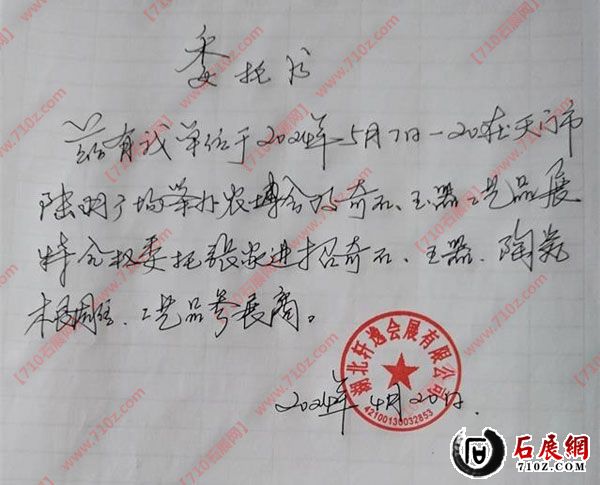 委托书
兹有我单位于2024年5月7日—20在天门市
陆羽广场举办农博会及奇石、玉器工艺品展
特全权委托张家进招奇石、玉器、陶瓷
根雕、工艺品参展商。
湖北轩逸会展有限公司
42100130032853
2024年4月20日.
石展網
710Z.COM
【710石展网】
www.710z.com